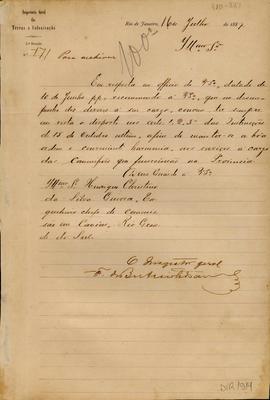 Inspectoria Geral
das
Terras e Colonisação
Rio de Janeiro, 16 de Julho de 1887
N. 171
Para archivar
Illmo Sr.
Em resposta ao officio de V. Sa, datado de
10 de Junho pp, recommendo a V. Sa, que no desem-
penho dos deveres a seu cargo, tenha sempre
em vista o disposto nos arts 1, 2, 3 das Instrucções
de 15 de Outubro ultimo, afim de manter-se a boa
ordem e conveniente harmonia, nos serviços a cargo
das Commissões que funccionam na Provincia
Deus Guarde a V. Sa
Illmo Sr. Henrique Christino
da Silva Guerra, En-
genheiro chefe da commis-
são em Caxias, Rio Gran-
de do Sul.
O Inspector geral
F. de B.
DIR/194